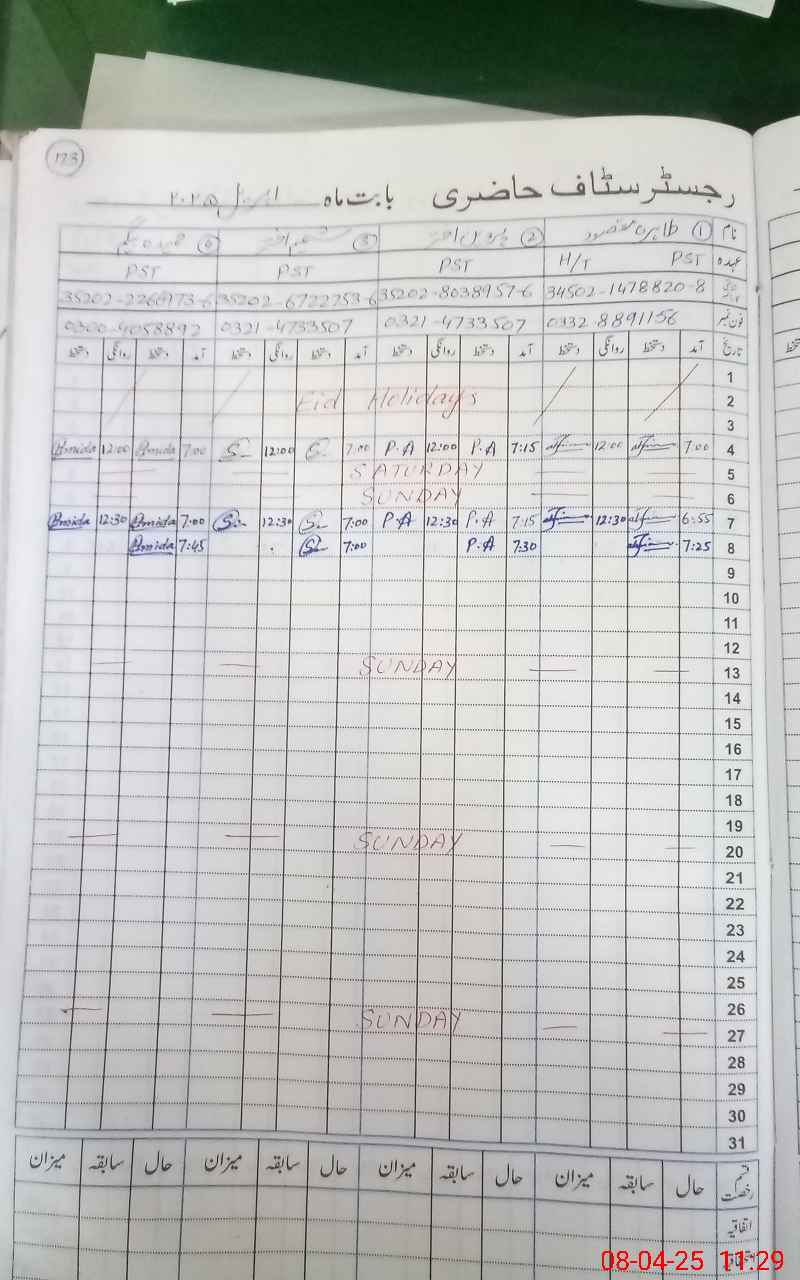 123
رجسٹر سٹاف حاضری بابت ماہ اپریل ۲۰۲۵
نام ① طاہرہ مقصود ② پروین اختر ③ شمیم اختر ④ حمیدہ بیگم
عہدہ PST H/T PST PST PST
34502-1478820-8 35202-8038957-6 35202-6722753-6 35202-2268973-6
فون نمبر 0332-8891156 0321-4733507 0321-4733507 0300-4058892
تاریخ آمد دستخط روانگی دستخط آمد دستخط روانگی دستخط آمد دستخط روانگی دستخط آمد دستخط روانگی دستخط
1
2 Eid Holidays
3
4 7:00 12:00 7:15 P.A 12:00 P.A 7:00 S 12:00 S 7:00 Hmida 12:00 Hmida
5 SATURDAY
6 SUNDAY
7 6:55 12:30 7:15 P.A 12:30 P.A 7:00 S 12:30 S 7:00 Hmida 12:30 Hmida
8 7:25 7:30 P.A 7:00 S 7:45 Hmida
9
10
11
12
13 SUNDAY
14
15
16
17
18
19
20 SUNDAY
21
22
23
24
25
26
27 SUNDAY
28
29
30
31
قسم رخصت حال سابقہ میزان حال سابقہ میزان حال سابقہ میزان حال سابقہ میزان
اتفاقیہ
08-04-25 11:29